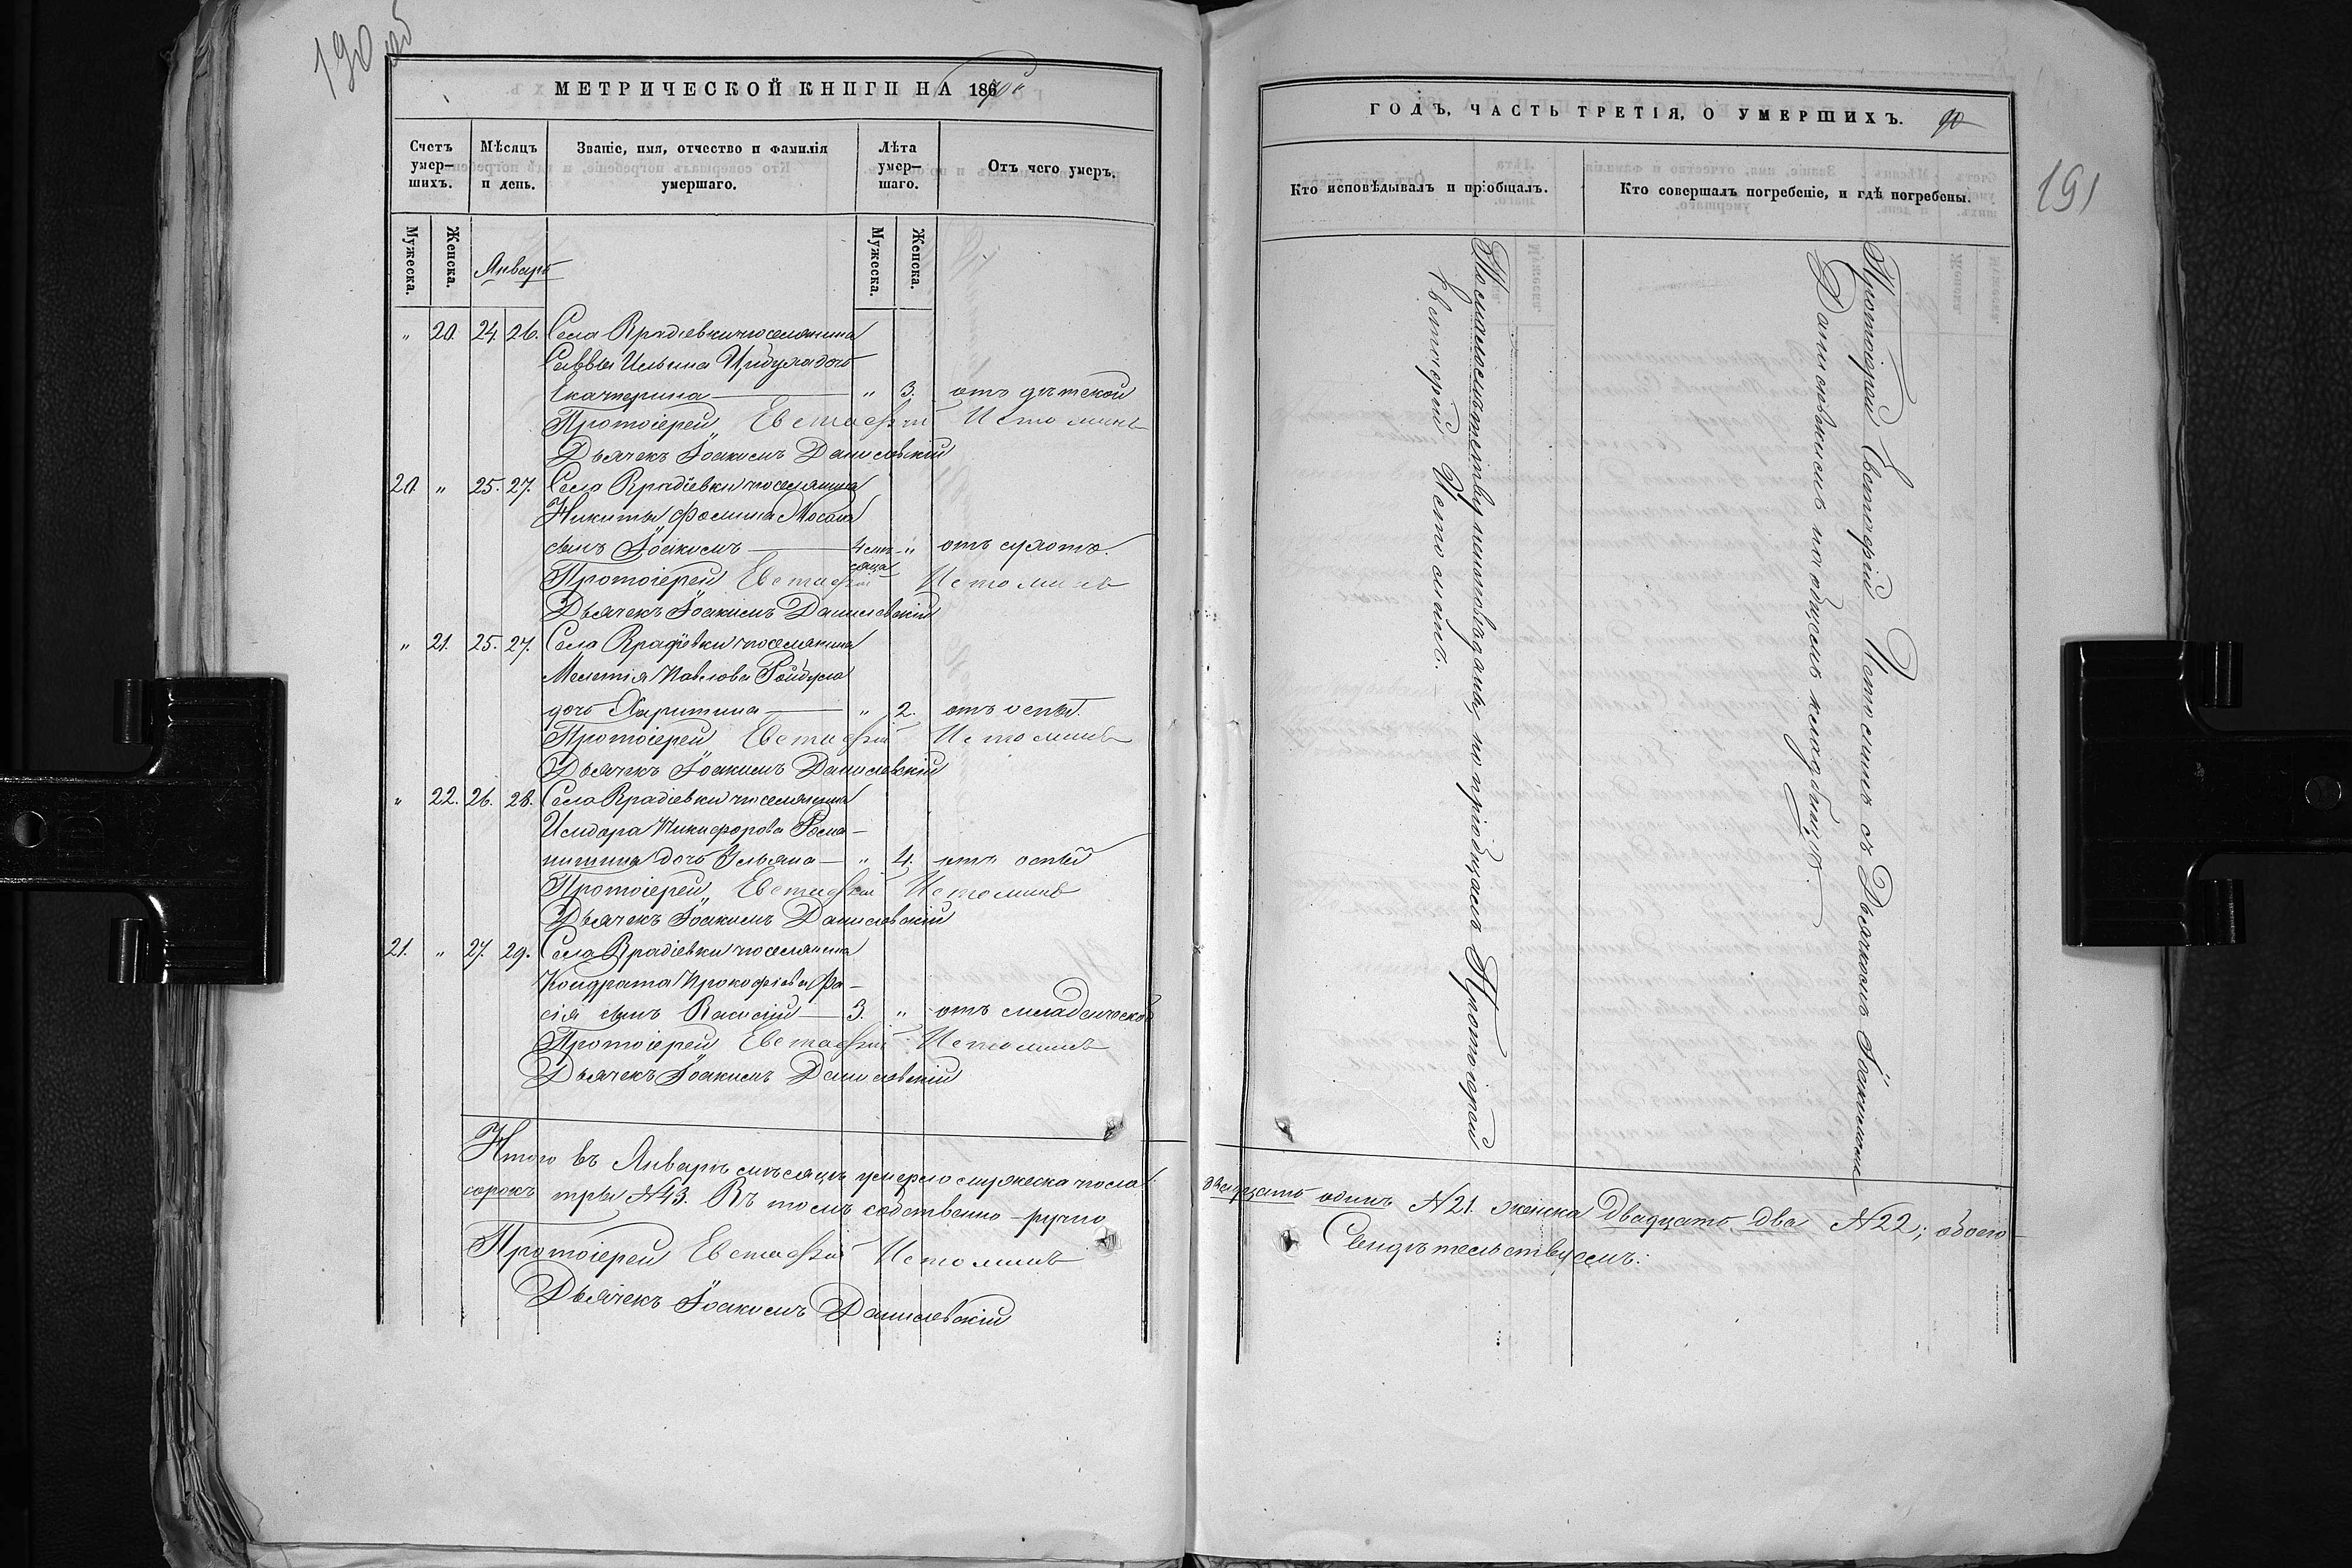 190 об
МЕТРИЧЕСКОЙ КНИГИ НА 186
Счетъ умер–шихъ.
Мѣсяцъ и день.
Званіе, имя, отчество и фамилія умершаго.
Лѣта умер–шаго.
Отъ чего умеръ.
Мужеска.
Женска.
Январь
Мужеска.
Женска.
" 20. 24. 26. Села Врадіевки поселянина
Саввы Ильина Цибуля дочь
Екатерина — " 3. отъ дѣтской
Протоіерей Евстафій Истоминъ
Дьячекъ Іоакимъ Данилевскій
20. " 25. 27. Села Врадіевки поселянина
Никиты Фомина
сынъ Іоакимъ — 4 мѣ-сяца " отъ сухотъ.
Протоіерей Евстафій Истоминъ
Дьячекъ Іоакимъ Данилевскій
" 21. 25. 27. Села Врадіевки поселянина
Мелетія Павлова
дочь Харитина — " 2. отъ оспы.
Протоіерей Евстафій Истоминъ
Дьячекъ Іоакимъ Данилевскій
" 22. 26. 28. Села Врадіевки поселянина
Исидора Никифорова
дочь Ульяна — " 4. отъ оспы
Протоіерей Евстафій Истоминъ
Дьячекъ Іоакимъ Данилевскій
21. " 27. 29. Села Врадіевки поселянина
Кондрата Прокофіева Фа-
сія сынъ Василій — 3. " отъ младенческой
Протоіерей Евстафій Истоминъ
Дьячекъ Іоакимъ Данилевскій
Итого въ Январѣ мѣсяцѣ умерло мужеска пола:
сорокъ три №43. Въ томъ собственно-ручно
Протоіерей Евстафій Истоминъ
Дьячекъ Іоакимъ Данилевскій
ГОДЪ, ЧАСТЬ ТРЕТІЯ, О УМЕРШИХЪ. 90
191
Кто исповѣдывалъ и пріобщалъ.
Кто совершалъ погребеніе, и гдѣ погребены.
По малолѣтству неисповѣданы, но пріобщалъ Протоіерей
Евстафій Истоминъ.
Протоіерей Евстафій Истоминъ съ Дьячкомъ Іоакимомъ
Данилевскимъ на общемъ кладбищѣ.
двадцать одинъ №21. женска двадцать два №22; обоего
Свидѣтельствуемъ: